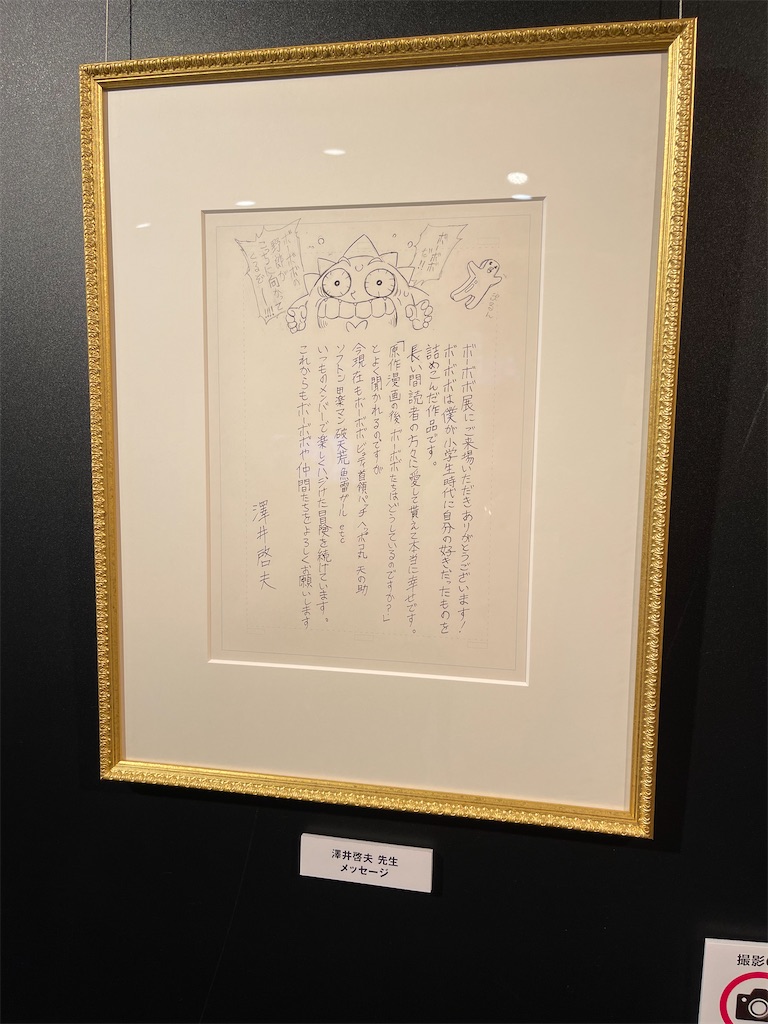 ボボボ
だ!!
ボーボボの
野郎が
こっちに向かって
くるぞー!!!
ボーボボ展にご来場いただきありがとうございます!
ボーボボは僕が小学生時代に自分の好きだったものを
詰めこんだ作品です。
長い間読者の方々に愛して貰えて本当に幸せです。
「原作漫画の後ボーボボたちはどうしているのですか?」
とよく聞かれるのですが
今現在もボーボボ ビュティ 首領パッチ ヘッポコ丸 天の助
ソフトン 田楽マン 破天荒 魚雷ガール etc
いつものメンバーで楽しくハジけた冒険を続けています。
これからもボーボボや仲間たちをよろしくお願いします
澤井啓夫
澤井啓夫 先生
メッセージ
撮影